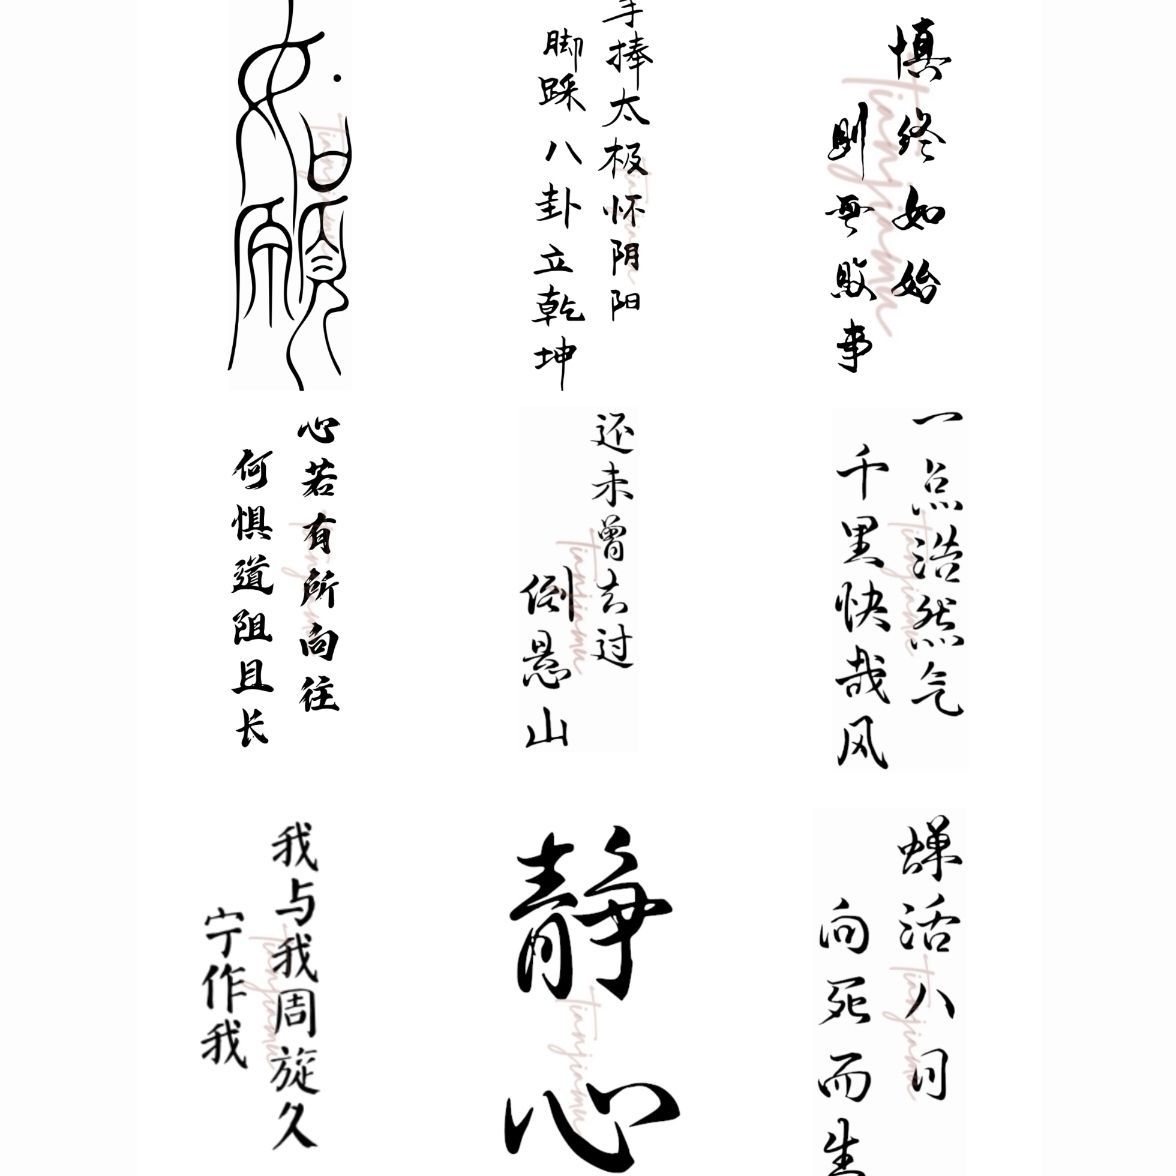 如願
手捧太极怀阴阳
脚踩八卦立乾坤
慎终如始
则無敗事
tianjiamu
心若有所向往
何惧道阻且长
还未曾去过
倒悬山
tianjiamu
一点浩然气
千里快哉风
tianjiamu
我与我周旋久
宁作我
tianjiamu
静心
tianjiamu
蝉活八日
向死而生
tianjiamu